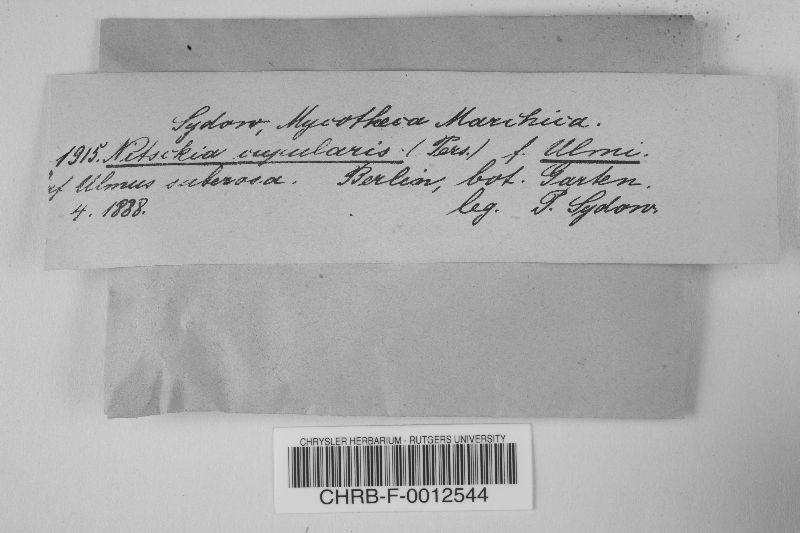 Sydow, Mycotheca Marchica.
1915. Nitschkia cupularis. (Pers.) f. Ulmi.
auf Ulmus suberosa. Berlin, bot. Garten.
4. 1888. leg. P. Sydow.
CHRYSLER HERBARIUM - RUTGERS UNIVERSITY
CHRB-F-0012544